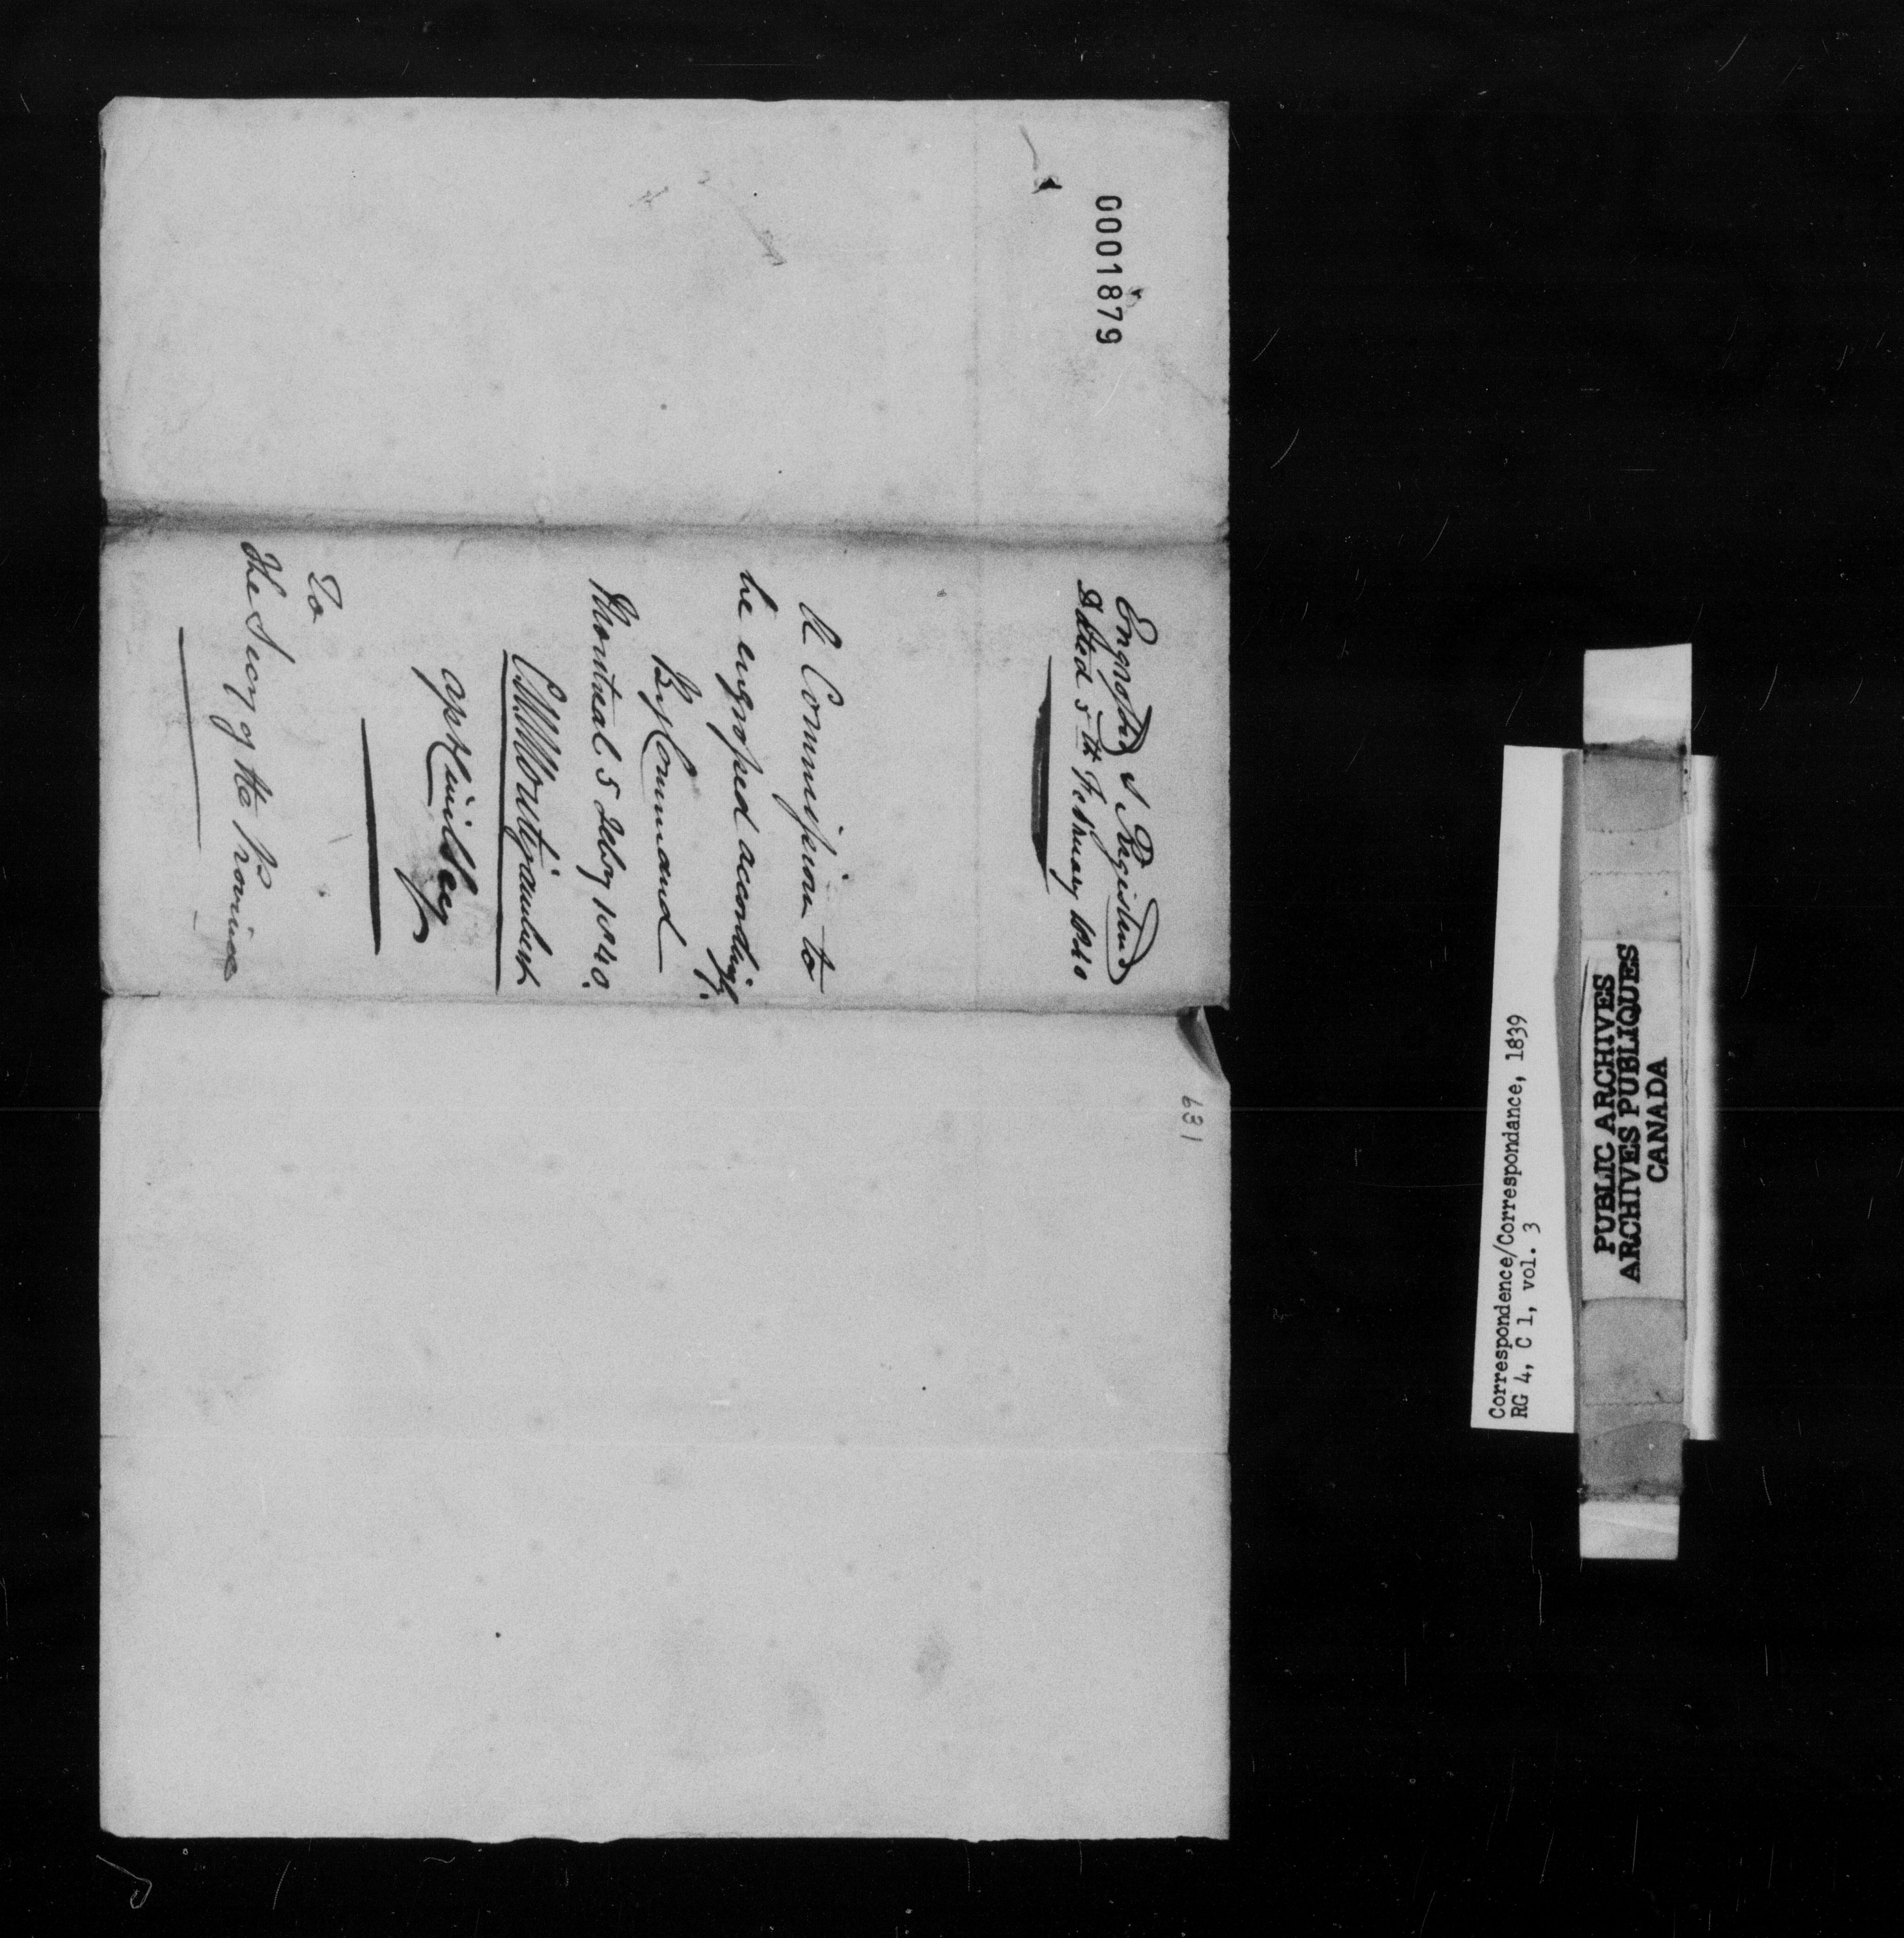 0001879
Engrossed & Registered
Dated 5th February 1840
A Commission to
be engrossed accordingly.
By Command
Montreal 5 Feby 1840.
Asst Civil Secy
To
The Secy of the Province
189
Correspondence/Correspondance, 1839
RG 4, C 1, vol. 3
PUBLIC ARCHIVES
ARCHIVES PUBLIQUES
CANADA